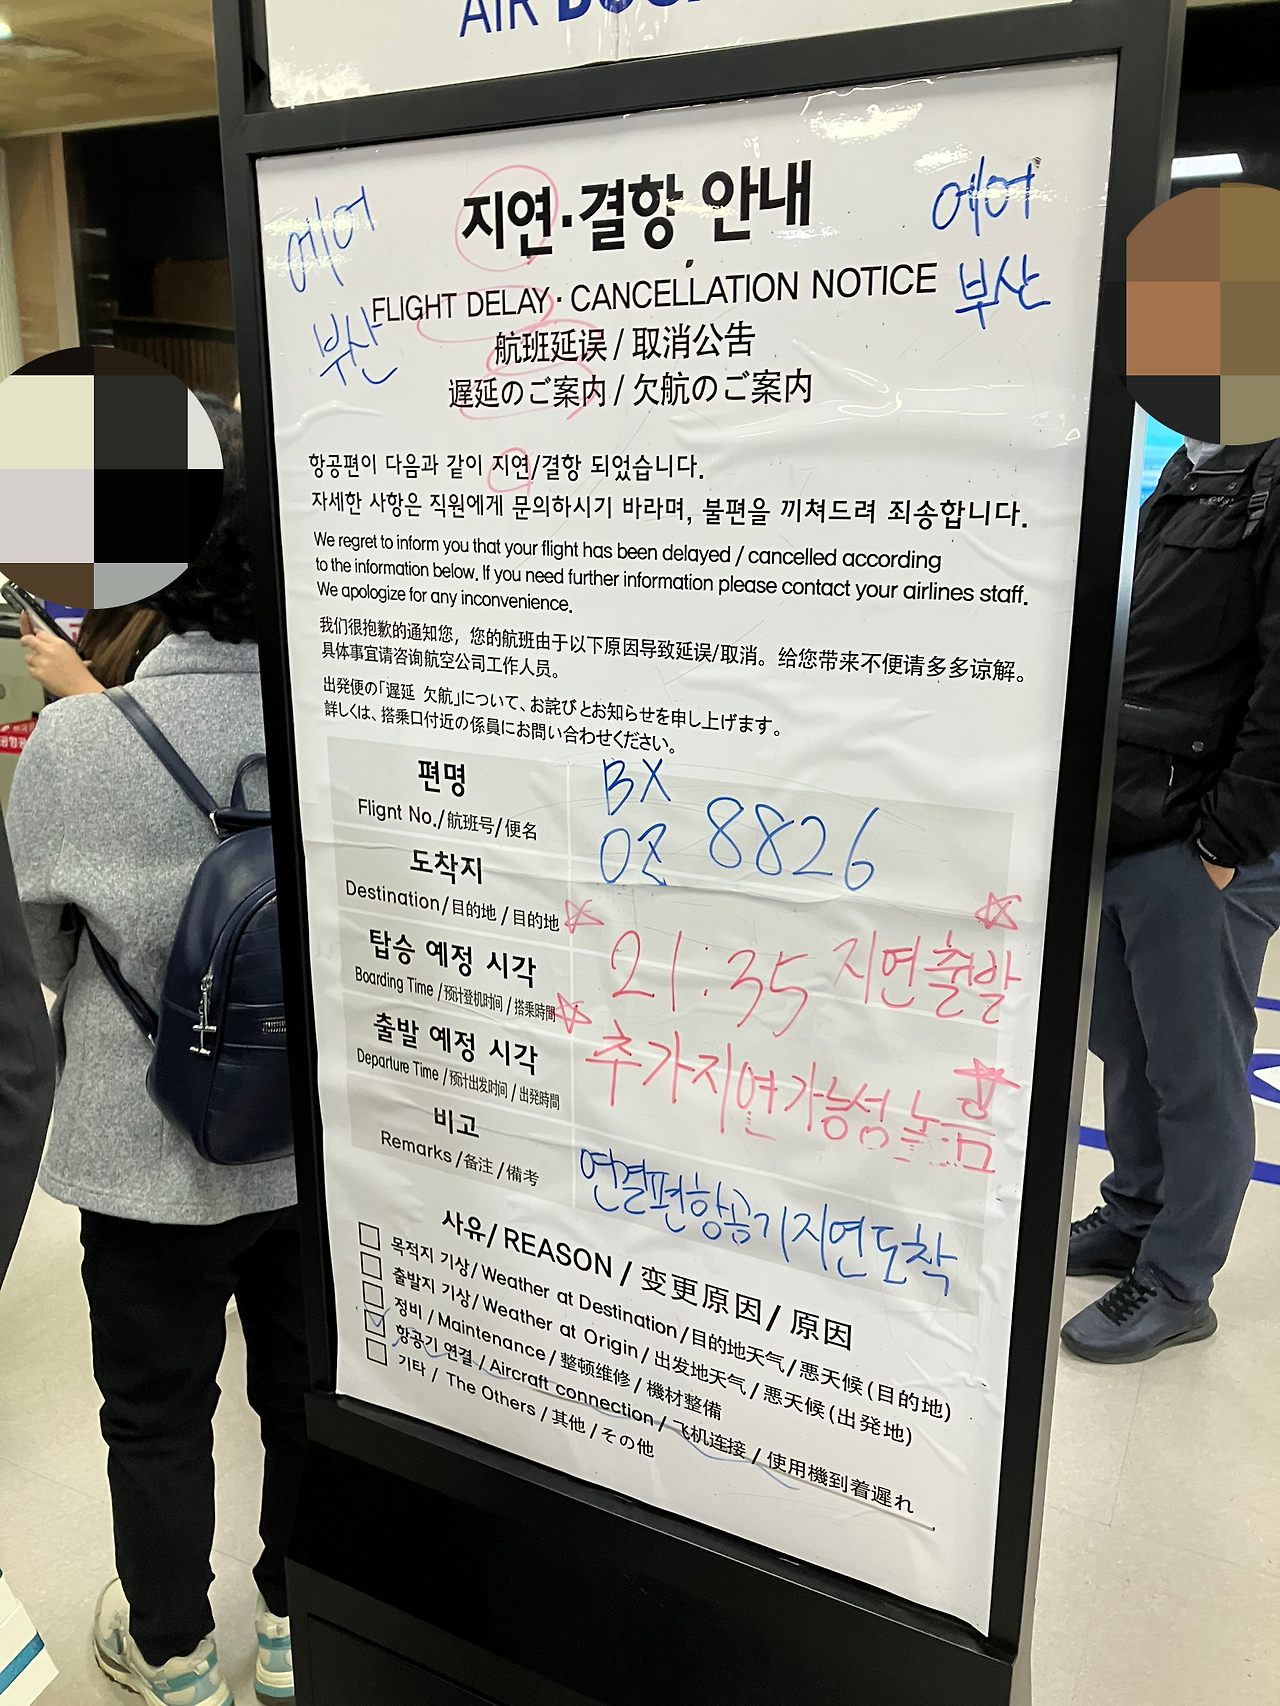 AIR
에어 부산
에어 부산
지연·결항 안내
FLIGHT DELAY · CANCELLATION NOTICE
航班延误 / 取消公告
遅延のご案内 / 欠航のご案内
항공편이 다음과 같이 지연/결항 되었습니다.
자세한 사항은 직원에게 문의하시기 바라며, 불편을 끼쳐드려 죄송합니다.
We regret to inform you that your flight has been delayed / cancelled according
to the information below. If you need further information please contact your airlines staff.
We apologize for any inconvenience.
我们很抱歉的通知您, 您的航班由于以下原因导致延误/取消。给您带来不便请多多谅解。
具体事宜请咨询航空公司工作人员。
出発便の「遅延 欠航」について、お詫びとお知らせを申し上げます。
詳しくは、搭乗口付近の係員にお問い合わせください。
편명
Flignt No./航班号/便名
BX
OZ 8826
도착지
Destination/目的地 / 目的地
탑승 예정 시각
Boarding Time / 预计登机时间 / 搭乘時間
21:35 지연출발
출발 예정 시각
Departure Time / 预计出发时间 / 出発時間
추가지연가능성 높음
비고
Remarks / 备注 / 備考
연결편항공기지연도착
사유/ REASON / 变更原因/ 原因
목적지 기상/ Weather at Destination/目的地天气/ 悪天候(目的地)
출발지 기상/ Weather at Origin/ 出发地天气/ 悪天候(出発地)
정비 / Maintenance/ 整顿维修/ 機材整備
항공기 연결 / Aircraft connection / 飞机连接 / 使用機到着遅れ
기타 / The Others / 其他 / その他